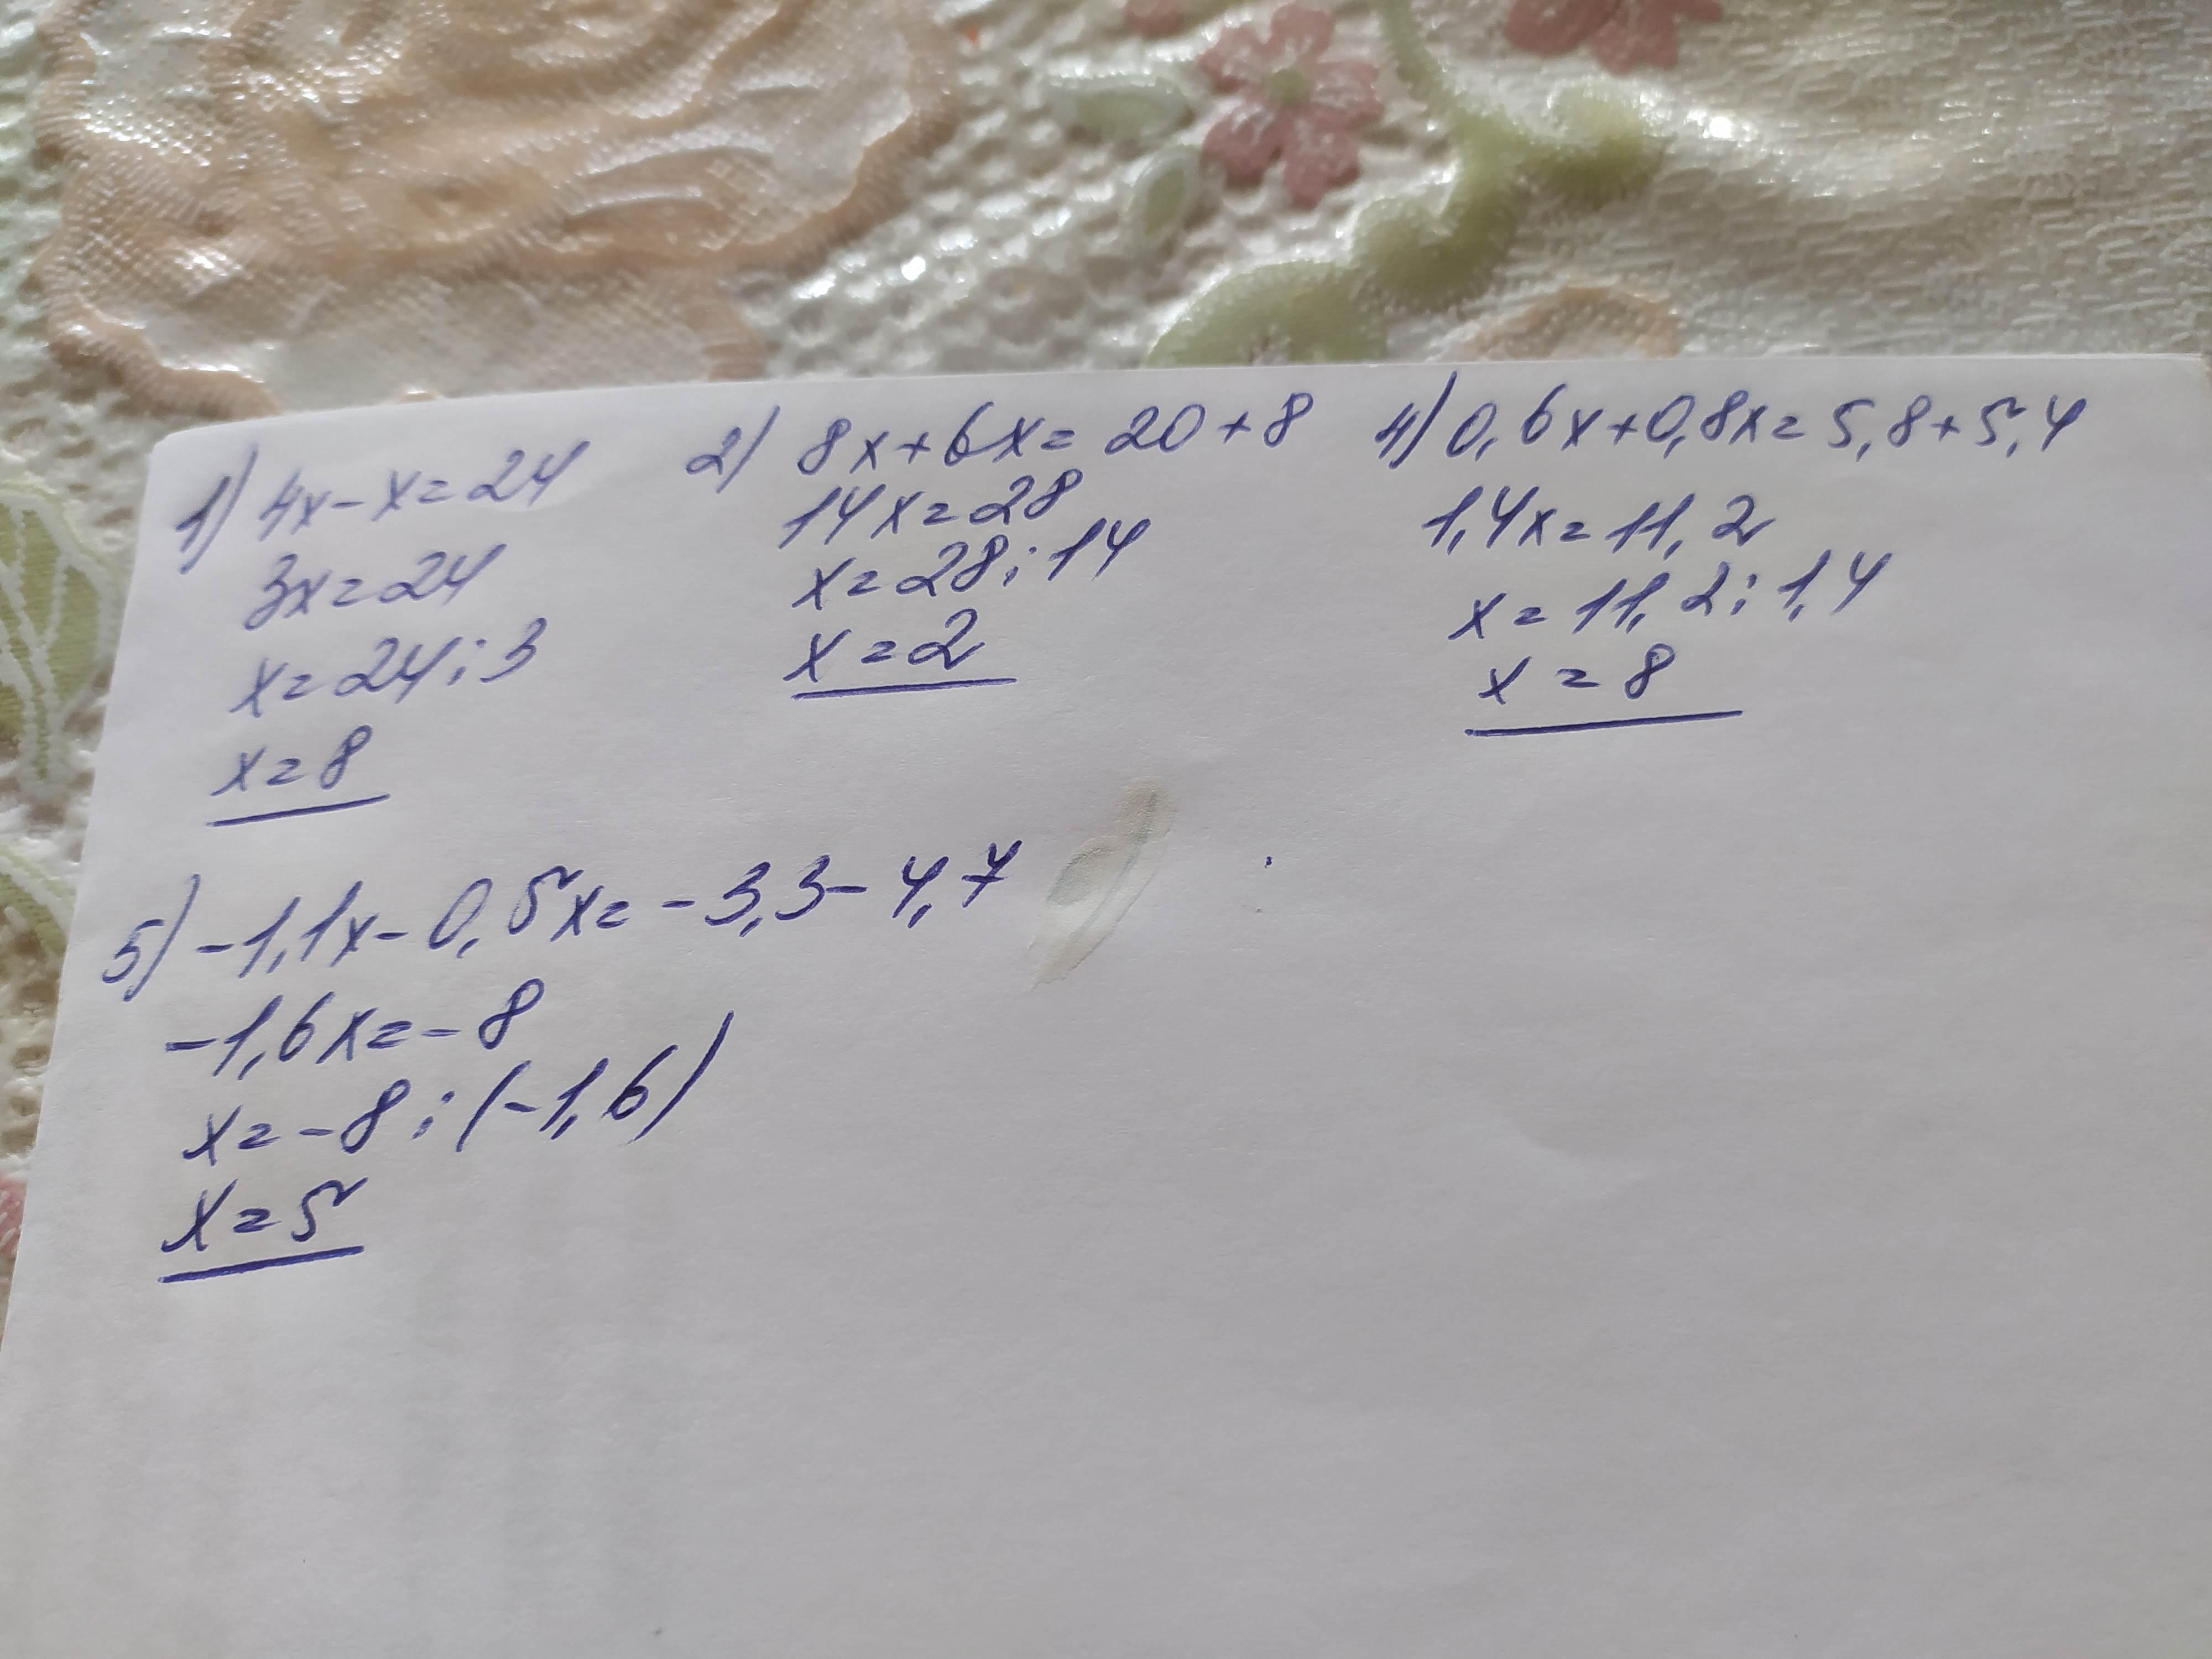 1) 4x-x=24
3x=24
x=24:3
x=8
2) 8x+6x=20+8
14x=28
x=28:14
x=2
4) 0,6x+0,8x=5,8+5,4
1,4x=11,2
x=11,2:1,4
x=8
5) -1,1x-0,5x=-3,3-4,7
-1,6x=-8
x=-8:(-1,6)
x=5